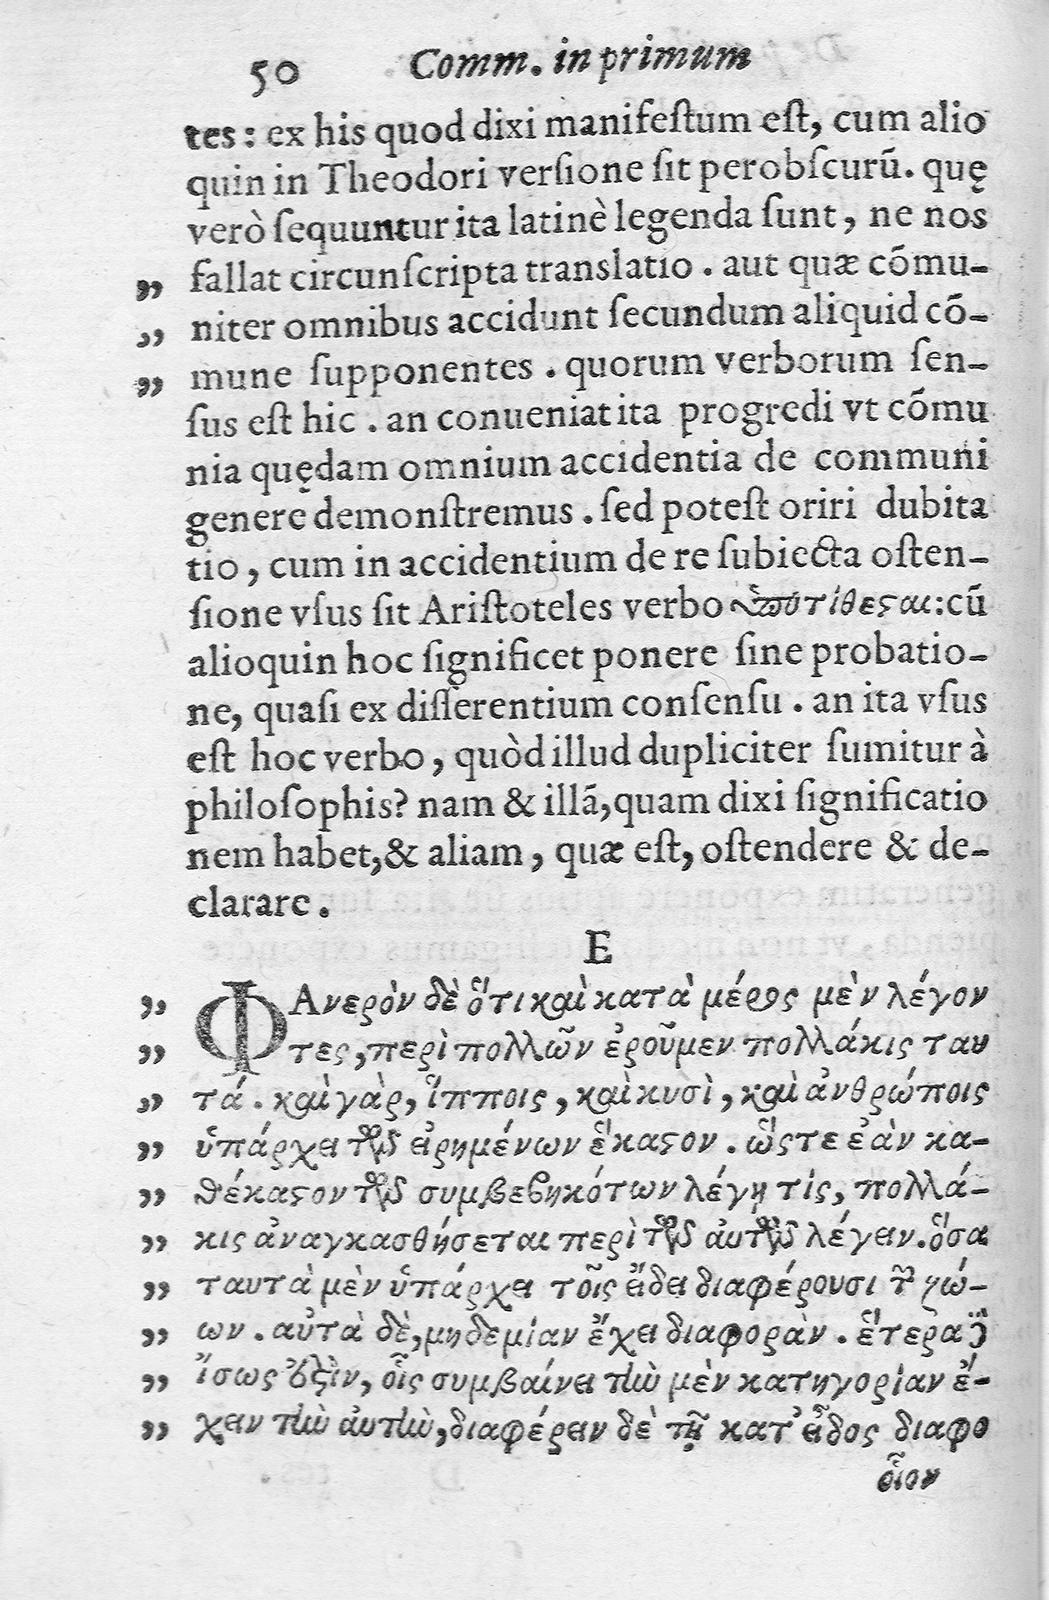 50 Comm. in primum
tes: ex his quod dixi manifeſtum eſt, cum alio
quin in Theodori verſione ſit perobſcurū. quę
verò ſequuntur ita latinè legenda ſunt, ne nos
„ fallat circunſcripta translatio. aut quæ cōmu-
„ niter omnibus accidunt ſecundum aliquid cō-
„ mune ſupponentes. quorum verborum ſen-
ſus eſt hic. an conueniat ita progredi vt cōmu
nia quędam omnium accidentia de communi
genere demonſtremus. ſed poteſt oriri dubita
tio, cum in accidentium de re ſubiecta oſten-
ſione vſus ſit Ariſtoteles verbo ὑποτίθεϛαι: cū
alioquin hoc ſignificet ponere ſine probatio-
ne, quaſi ex diſſerentium conſenſu. an ita vſus
eſt hoc verbo, quòd illud dupliciter ſumitur à
philoſophis? nam & illā, quam dixi ſignificatio
nem habet, & aliam, quæ eſt, oſtendere & de-
clarare.
E
„ ΦΑνερὸν δὲ ὅτι καὶ κατὰ μέρος μὲν λέγον
„ τες, περὶ πολλῶν ἐροῦμεν πολλάκις ταυ
„ τά. καὶ γὰρ, ἵπποις, καὶ κυσὶ, καὶ ἀνθρώποις
„ ὑπάρχει τῶν εἰρημένων ἕκαϛον. ὥςτε ἐὰν κα-
„ θέκαϛον τῶν συμβεβηκότων λέγῃ τίς, πολλά-
„ κις ἀναγκασθήσεται περὶ τῶν αὐτῶν λέγειν. ὅσα
„ ταυτὰ μὲν ὑπάρχει τοῖς εἴδει διαφέρουσι τῶν ζώ-
„ ων. αὐτὰ δὲ, μηδεμίαν ἔχει διαφορὰν. ἕτερα δὲ
„ ἴσως ἐϛὶν, οἷς συμβαίνει τὴν μὲν κατηγορίαν ἔ-
„ χειν τὴν αὐτὴν, διαφέρειν δὲ τῇ κατ᾽ εἶδος διαφο
οἷον